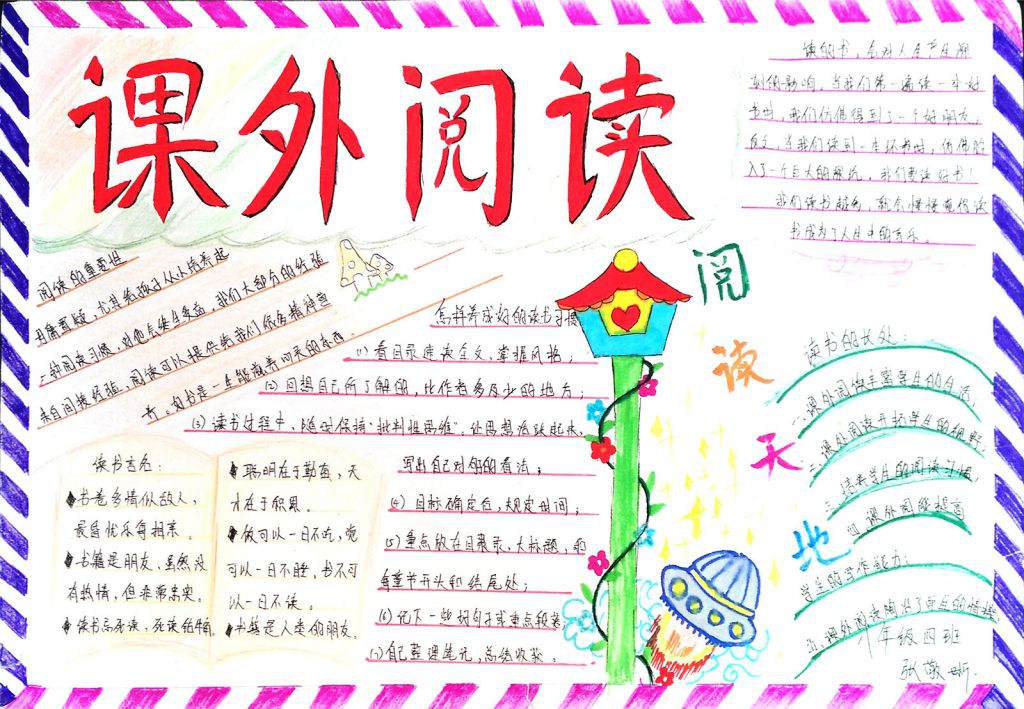 课外阅读
读的书，会对人生产生深
刻的影响，当我们第一遍读一本好
书时，我们仿佛得到了一个好朋友，
当我们读到一本坏书时，仿佛
入了一个巨大的深坑，我们要读好书！
我们读书越多，就会慢慢
书成为了人生中的音乐。
阅读的重要性
毋庸置疑，尤其是孩子从小培养起
一种阅读习惯，对他会终生受益，我们大部分的经验
来自间接经验，阅读可以提供给我们很多精神营
养，
怎样养成好的读书习惯
(1) 看目录速读全文，掌握风格；
(2) 回想自己所了解的，比作者多及少的地方；
(3) 读书过程中，随时保持“批判性思维”，让思想活跃起来，
写出自己对书的看法；
(4) 目标确定后，规定时间；
(5) 重点放在目录，大标题，和
每章节开头和结尾处；
(6) 记下一些好句子或重点段落
(7) 自己整理笔记，总结收获。
读书名言：
书卷多情似故人，
晨昏忧乐每相亲。
书籍是朋友，虽然没
有热情，但非常忠实。
读书忌死读，死读
聪明在于勤奋，天
才在于积累。
饭可以一日不吃，觉
可以一日不睡，书不可
以一日不读。
书籍是人类的朋友。
阅
读
天
地
读书的长处：
一、课外阅读丰富学生的生活；
二、课外阅读开拓学生的视野；
三、培养学生的阅读习惯；
四、课外阅读能提高
学生的写作能力；
五、课外阅读陶冶了学生的情操
年级四班
张敬